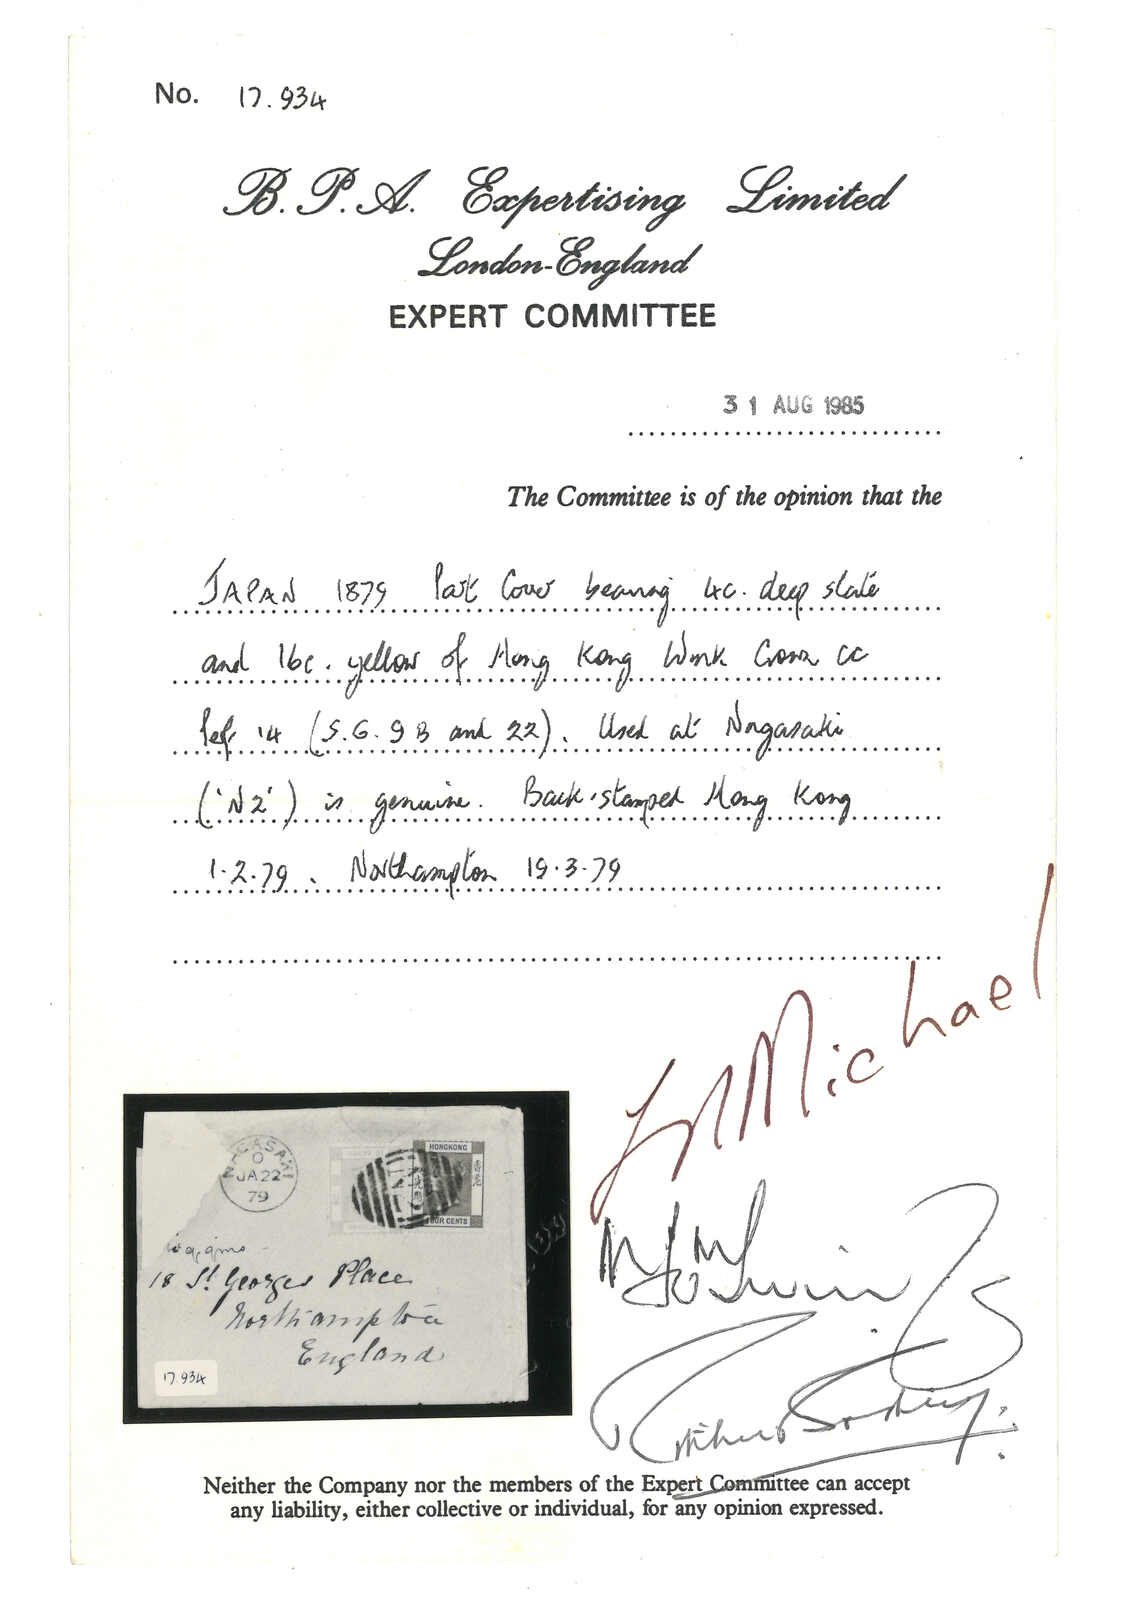 No. 17.934
B. P. A. Expertising Limited
London-England
EXPERT COMMITTEE
31 AUG 1985
The Committee is of the opinion that the
JAPAN 1879 Part Cover bearing 4c. deep slate
and 16c. yellow of Hong Kong Wmk Crown CC
Perf 14 (S.G. 9B and 22). Used at Nagasaki
('N2') is genuine. Back-stamped Hong Kong
1.2.79. Northampton 19.3.79
Michael
NAGASAKI
JA 22
79
HONGKONG
FOUR CENTS
18 St Georges Place
Northampton
England
17.934
Neither the Company nor the members of the Expert Committee can accept
any liability, either collective or individual, for any opinion expressed.